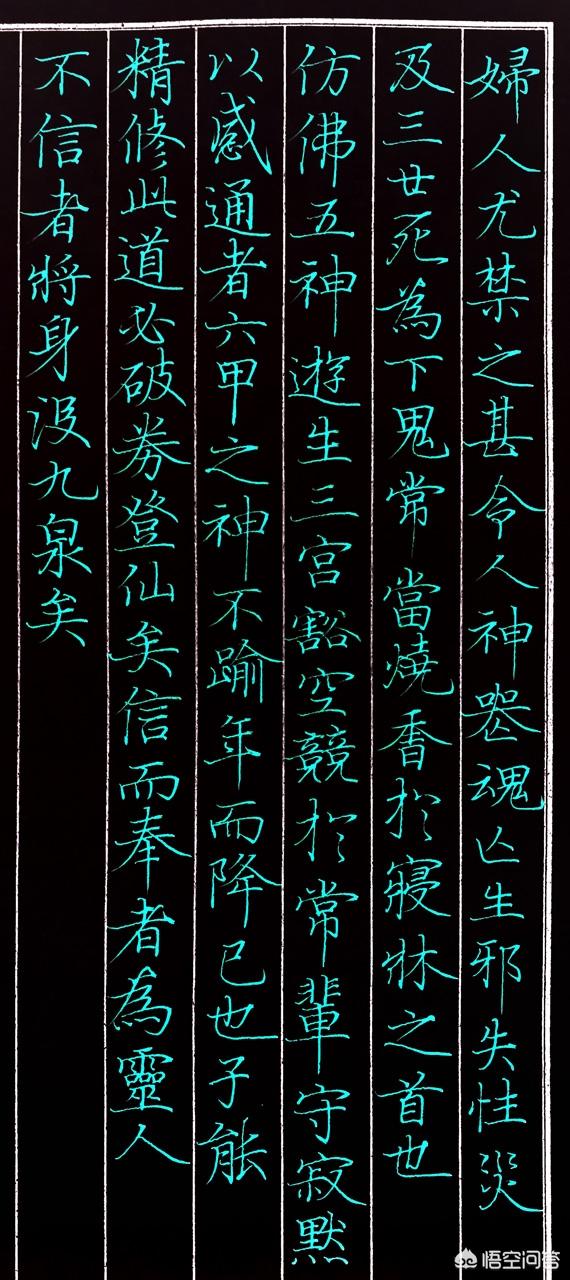 婦人尤禁之甚令人神喪魂亡生邪失性災
及三世死為下鬼常當燒香於寢牀之首世
仿佛五神遊生三宮豁空競於常輩守寂默
以感通者六甲之神不踰年而降已也子能
精修此道必破券登仙矣信而奉者為靈人
不信者將身沒九泉矣
悟空问答